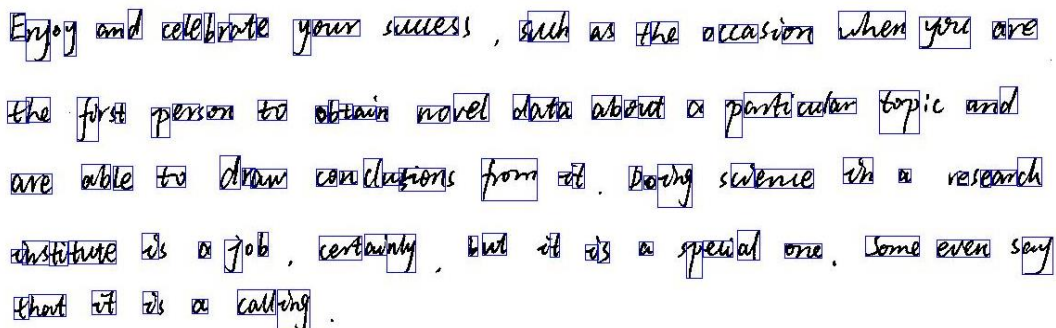 Enjoy and celebrate your success, such as the occasion when you are
the first person to obtain novel data about a particular topic and
are able to draw conclusions from it. Doing science in a research
institute is a job, certainly, but it is a special one. Some even say
that it is a calling.